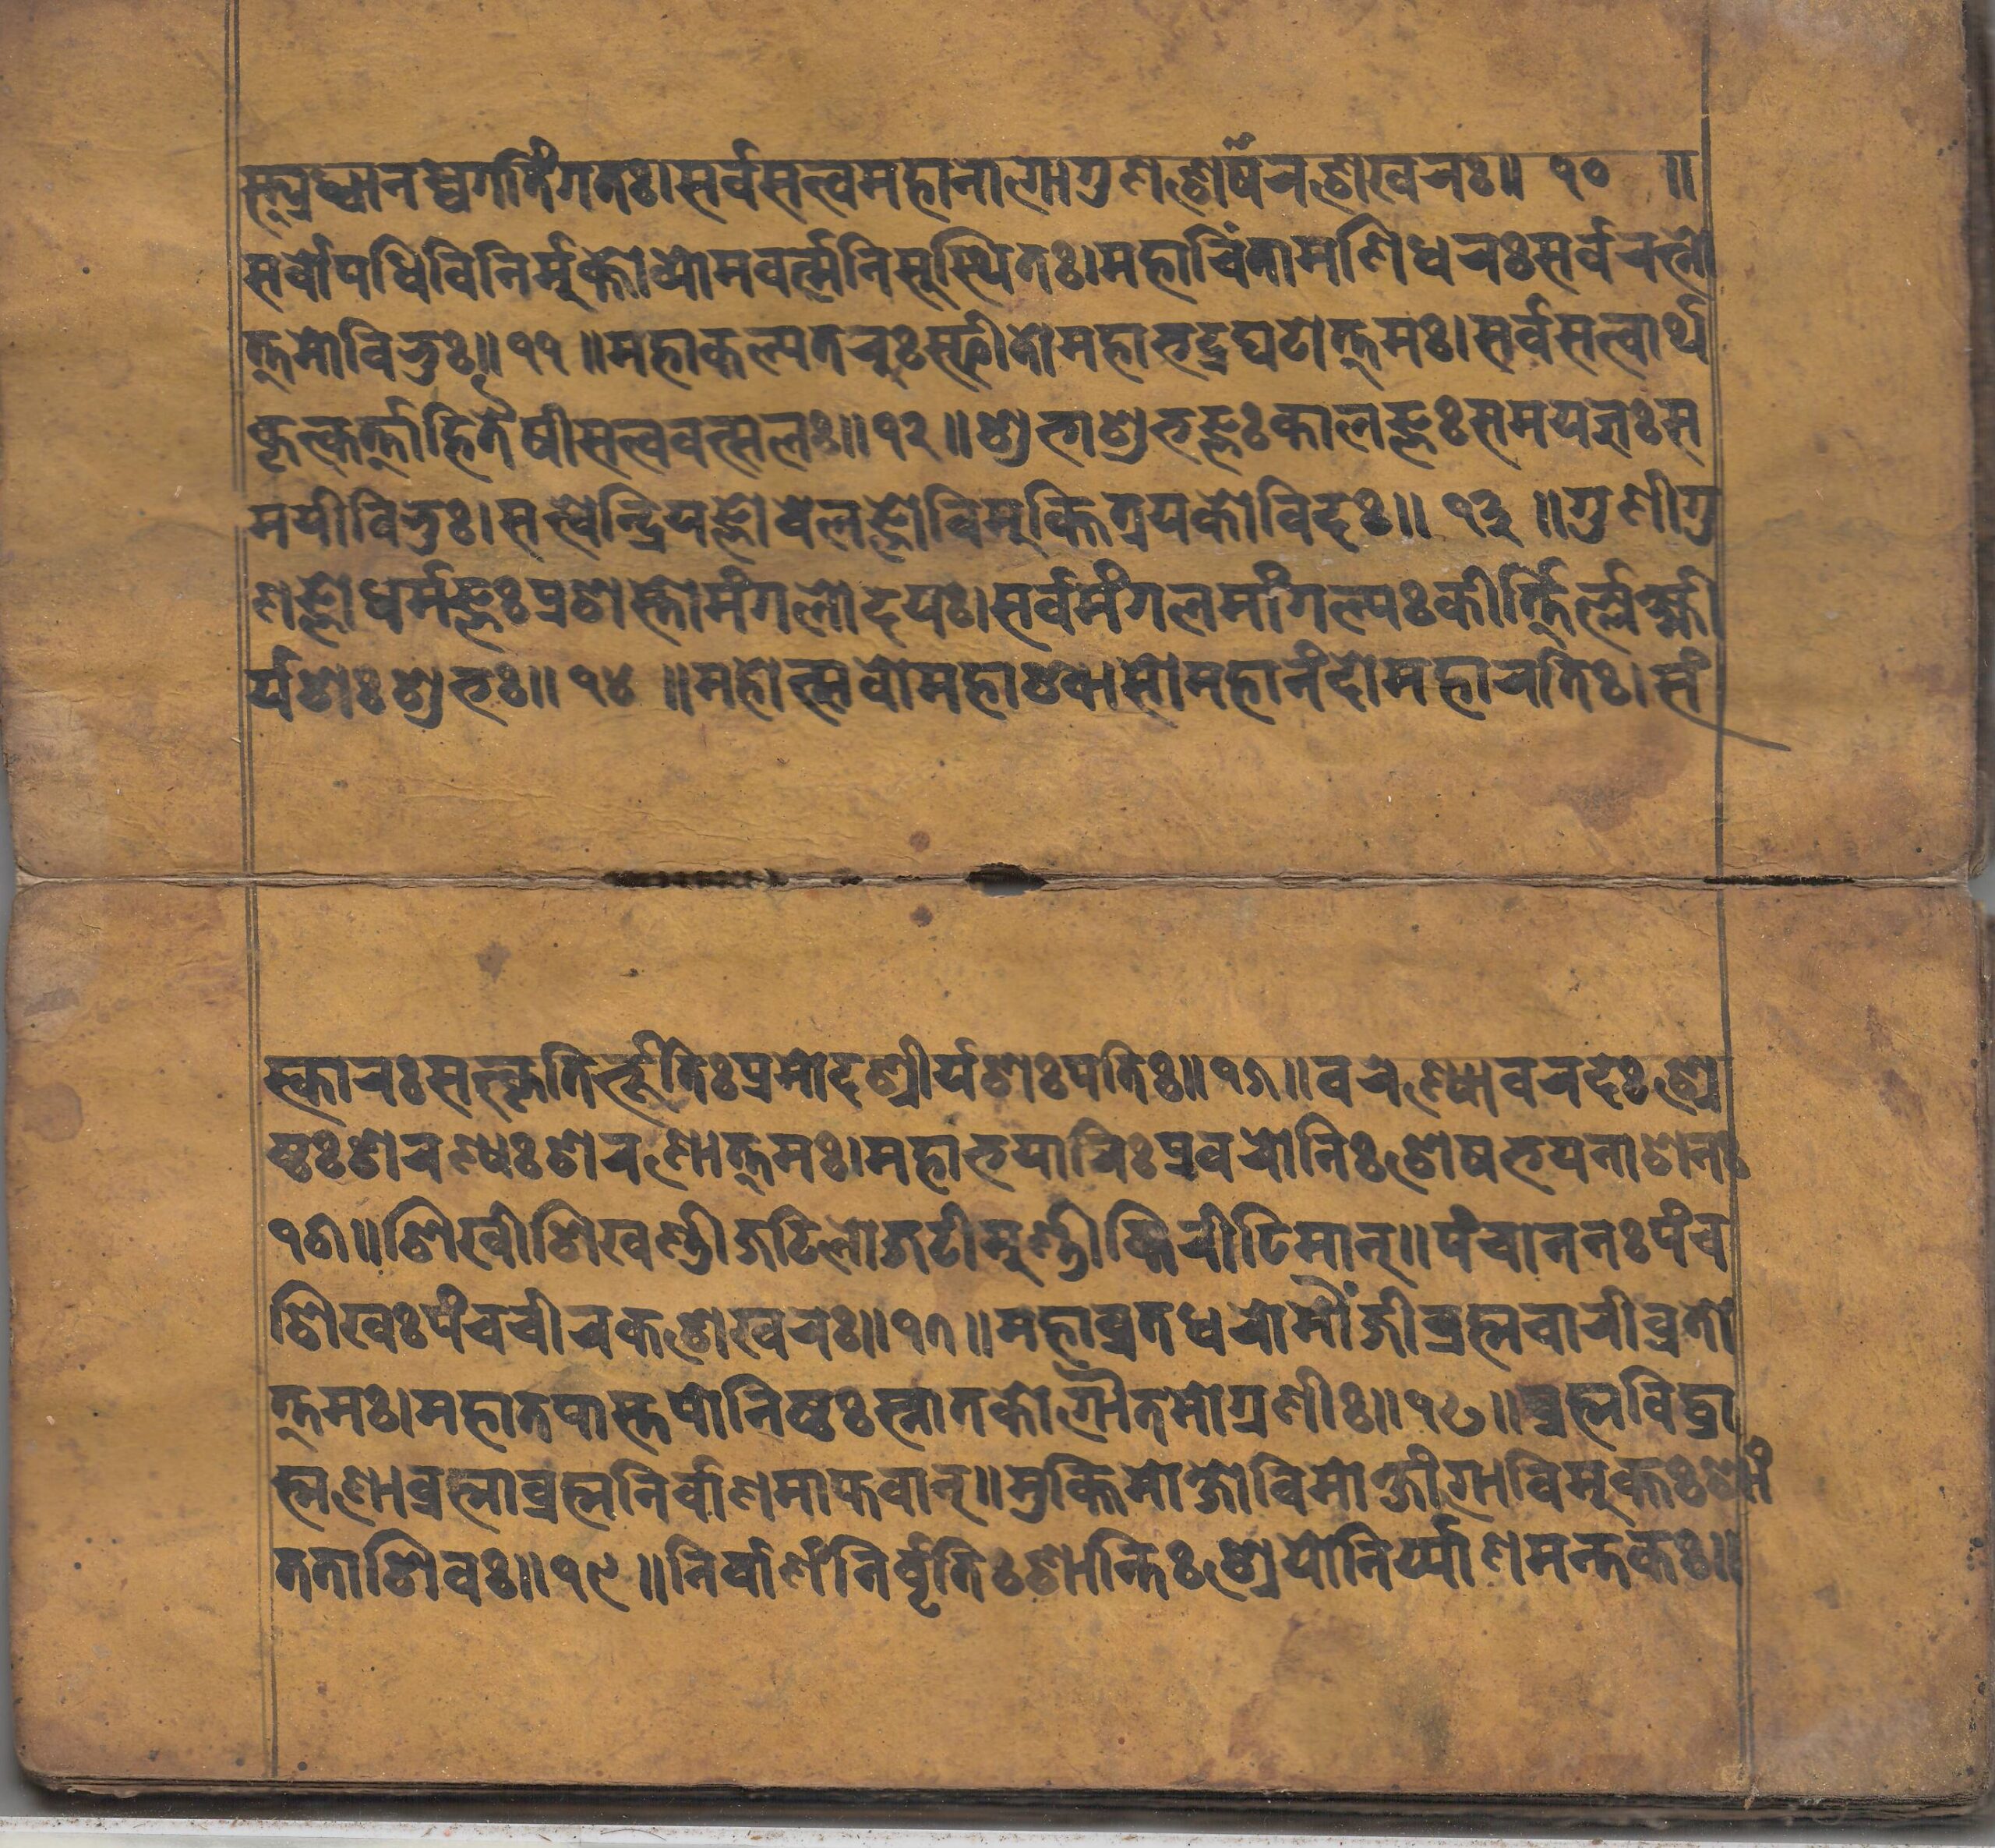 स्त्र्यध्वानध्वगतिंगतः।सर्वसत्त्वमहानागोगुणशेषरशेखरः॥ १० ॥
सर्वोपधिविनिर्मूक्तोव्योमवर्त्मनिसूस्थितः।महाचिंतामणिधरःसर्वरत्नो
त्तमोविभुः॥ ११ ॥महाकल्पतरुःस्फीतोमहाभद्रघटोत्तमः।सर्वसत्वार्थ
कृत्कर्त्ताहितैषीसत्ववत्सलः॥ १२ ॥शुभाशुभज्ञःकालज्ञःसमयज्ञःस
मयीविभुः।सत्त्वेन्द्रियज्ञोवेलज्ञोविमूक्तित्रयकोविदः॥ १३ ॥गुणीगु
णज्ञोधर्मज्ञःप्रशस्तोमंगलोदयः।सर्वमंगलमांगल्यःकीर्त्तिर्ल्लक्ष्मी
र्यशःशुभः॥ १४ ॥महोत्सवोमहाश्वासोमहानंदोमहारतिः।सं
त्कारःसत्कृतिर्भूतिःप्रमोदश्रीर्यशःपतिः॥ १५ ॥वरेण्योवरदःश्रे
ष्ठःशरण्यःशरणोत्तमः।महाभयारिःप्रवरोनिःशेषभयनाशनः
१६॥शिखीशिखण्डीजटिलोजटीमूण्डीकिरीटिमान्॥पंचाननःपंच
शिखःपंचचीरकशेखरः॥ १७ ॥महाव्रतधरोमौंजीब्रह्मचारीव्रतो
त्तमः।महातपास्तपोनिष्ठःस्नातकोगौतमोग्रणीः॥ १८ ॥ब्रह्मविद्ब्रा
ह्मणोब्रह्माब्रह्मनिर्वाणमाप्तवान्॥मुक्तिमोक्षोविमोक्षांगोविमूक्तःशां
तताशिवः॥ १९ ॥निर्वाणंनिर्वृतिःशान्तिःश्रेयोनिर्य्याणमन्तकः॥